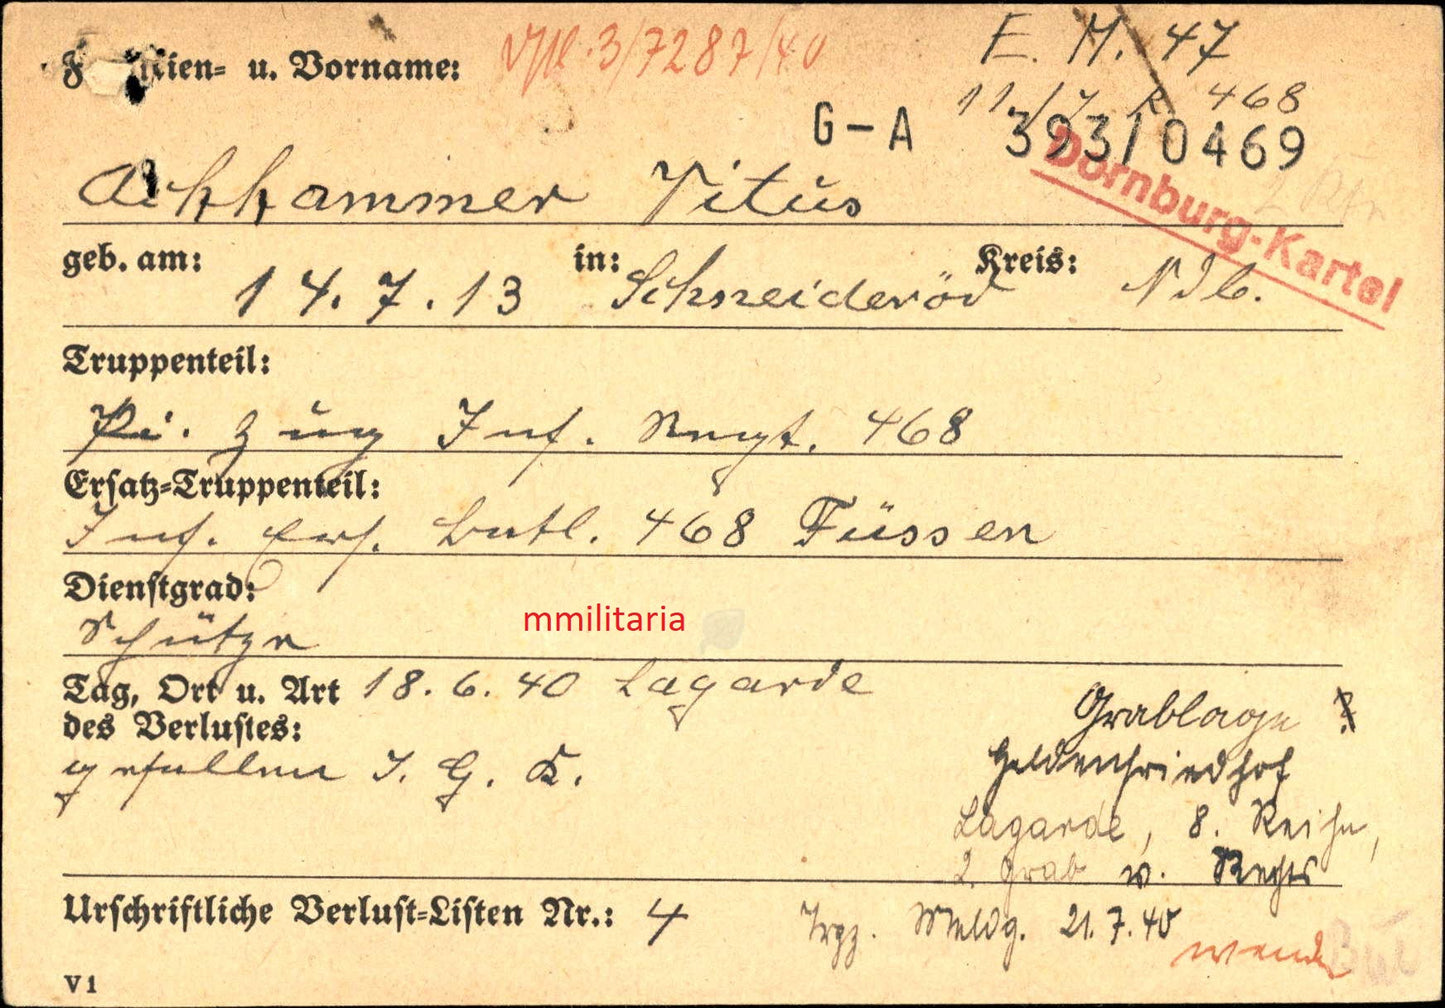 Familien= u. Vorname:
3/7287/40
E. M. 47
11./7. R. 468
G-A 393/0469
Dornburg-Kartei
Achhammer Vitus
geb. am: 14.7.13 in: Schneideröd Kreis: Ndb.
Truppenteil:
Pi. Zug Inf. Regt. 468
Ersatz=Truppenteil:
Inf. Ers. Batl. 468 Füssen
Dienstgrad:
Schütze
mmilitaria
Tag, Ort u. Art 18.6.40 Lagarde
des Verlustes:
gefallen I. G. K.
Grablage
Heldenfriedhof
Lagarde, 8. Reihe,
2. Grab v. Rechts
Urschriftliche Verlust=Listen Nr.: 4
Meldg. 21.7.40
wenden
V1